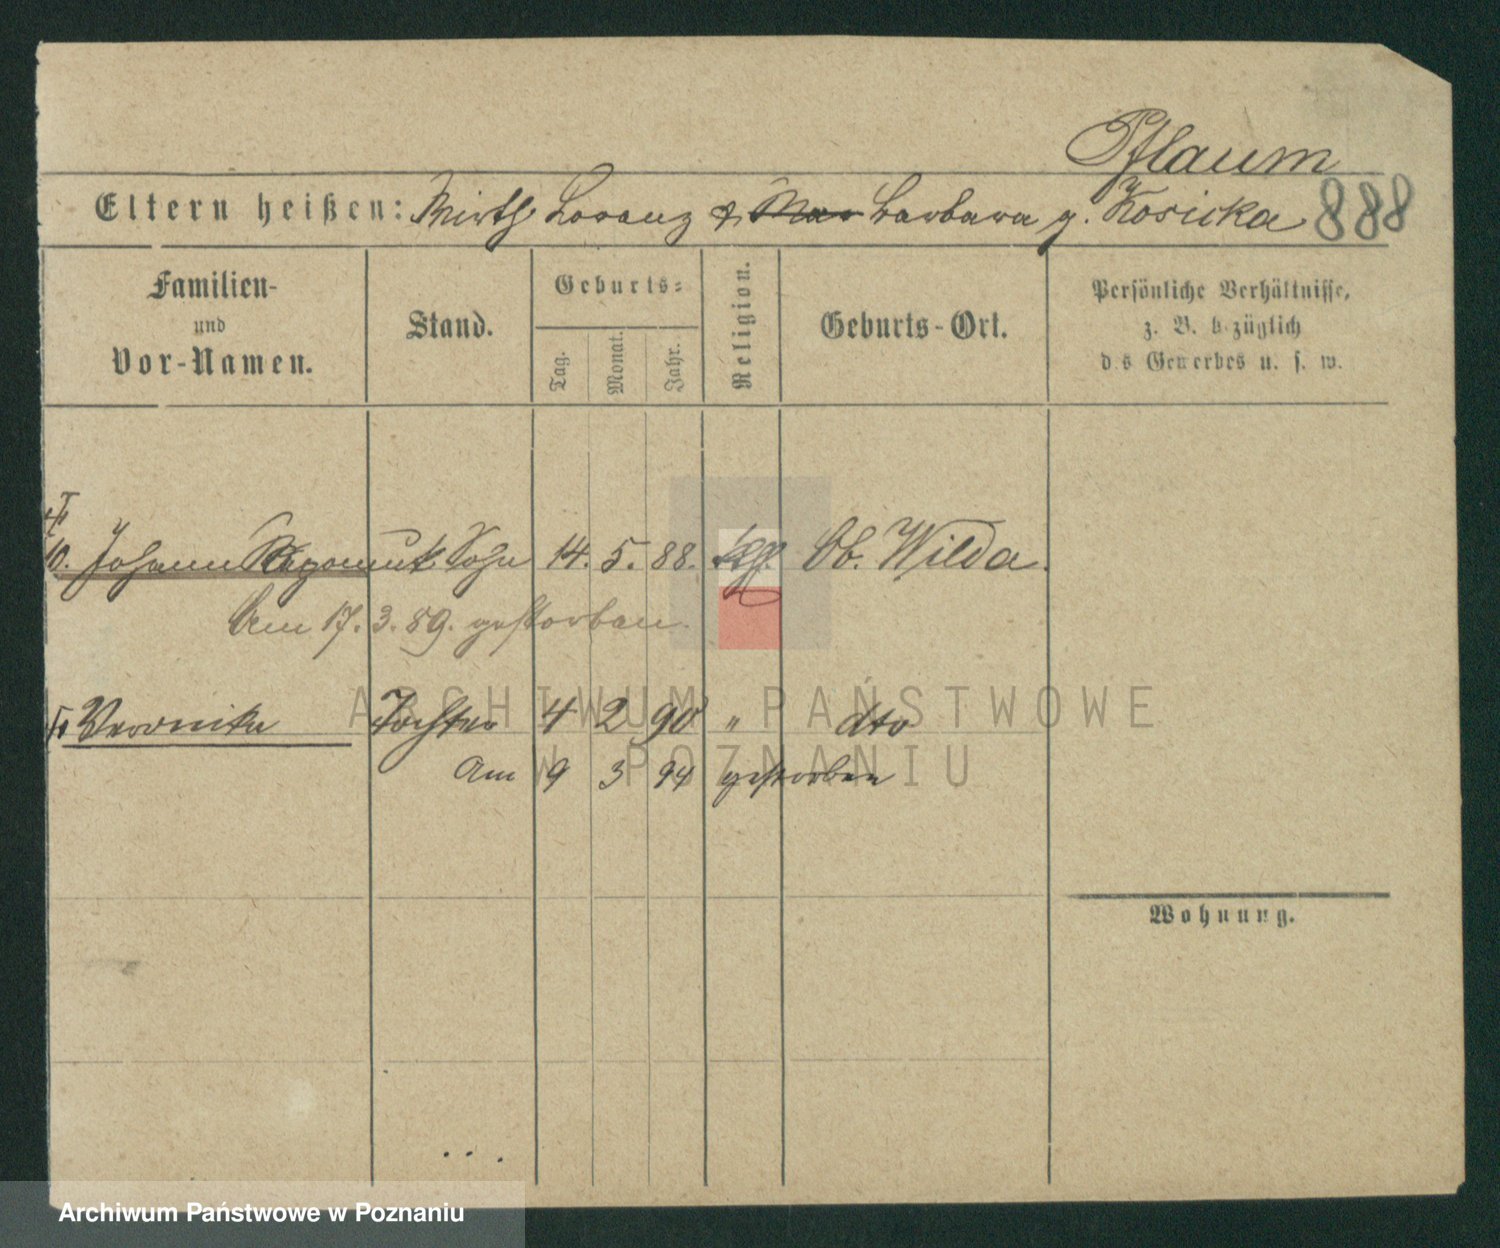 Pflaum
Eltern heißen: Wirth Lorenz & Mar Barbara g. Kosicka 888
Familien-
und
Vor-Namen.
Stand.
Geburts-
Tag.
Monat.
Jahr.
Religion.
Geburts-Ort.
Persönliche Verhältnisse,
z. B. bezüglich
des Gewerbes u. s. w.
10. Johann Nepomuk Sohn 14. 5. 88. kath. Ob. Wilda.
Am 17. 3. 89. gestorben.
Veronika Tochter 4 2 90 " dto
Am 9 3 94 gestorben
Wohnung.
ARCHIWUM PAŃSTWOWE
W POZNANIU
Archiwum Państwowe w Poznaniu